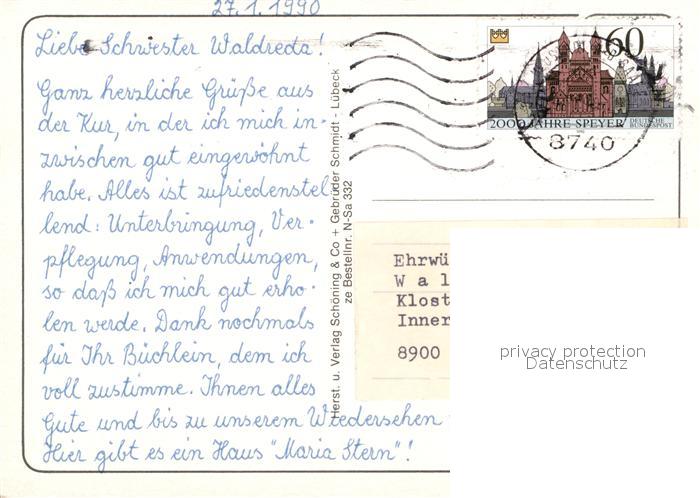 27.1.1990
Liebe Schwester Waldreda!
Ganz herzliche Grüße aus
der Kur, in der ich mich in-
zwischen gut eingewöhnt
habe. Alles ist zufriedenstel-
lend: Unterbringung, Ver-
pflegung, Anwendungen,
so daß ich mich gut erho-
len werde. Dank nochmals
für Ihr Büchlein, dem ich
voll zustimme. Ihnen alles
Gute und bis zu unserem Wiedersehen
Hier gibt es ein Haus "Maria Stern"!
Herst. u. Verlag Schöning & Co + Gebrüder Schmidt - Lübeck
ze Bestellnr. N-Sa 332
60
2000 JAHRE SPEYER
DEUTSCHE
BUNDESPOST
8740
Ehrwü
Wal
Klost
Inner
8900
privacy protection
Datenschutz